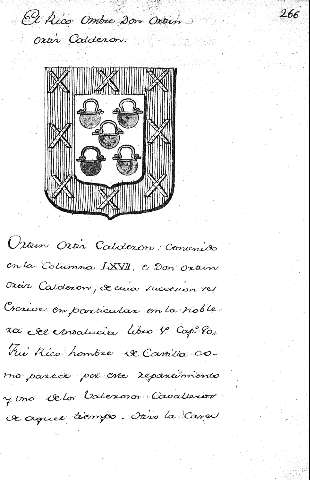 266
El Rico Ombre Don Ortun
Ortiz Calderon.
Ortun Ortiz Calderon: Contenido
en la Columna LXVII. es Don Ortun
Ortiz Calderon, de cuia sucesion se
Escrive en particular en la noble-
za del Andalucia libro 1º Capº 90.
Fui Rico hombre de Castilla co-
mo parece por este repartimiento
y uno de los Valerosos Cavalleros
de aquel tiempo. Otro la Casa